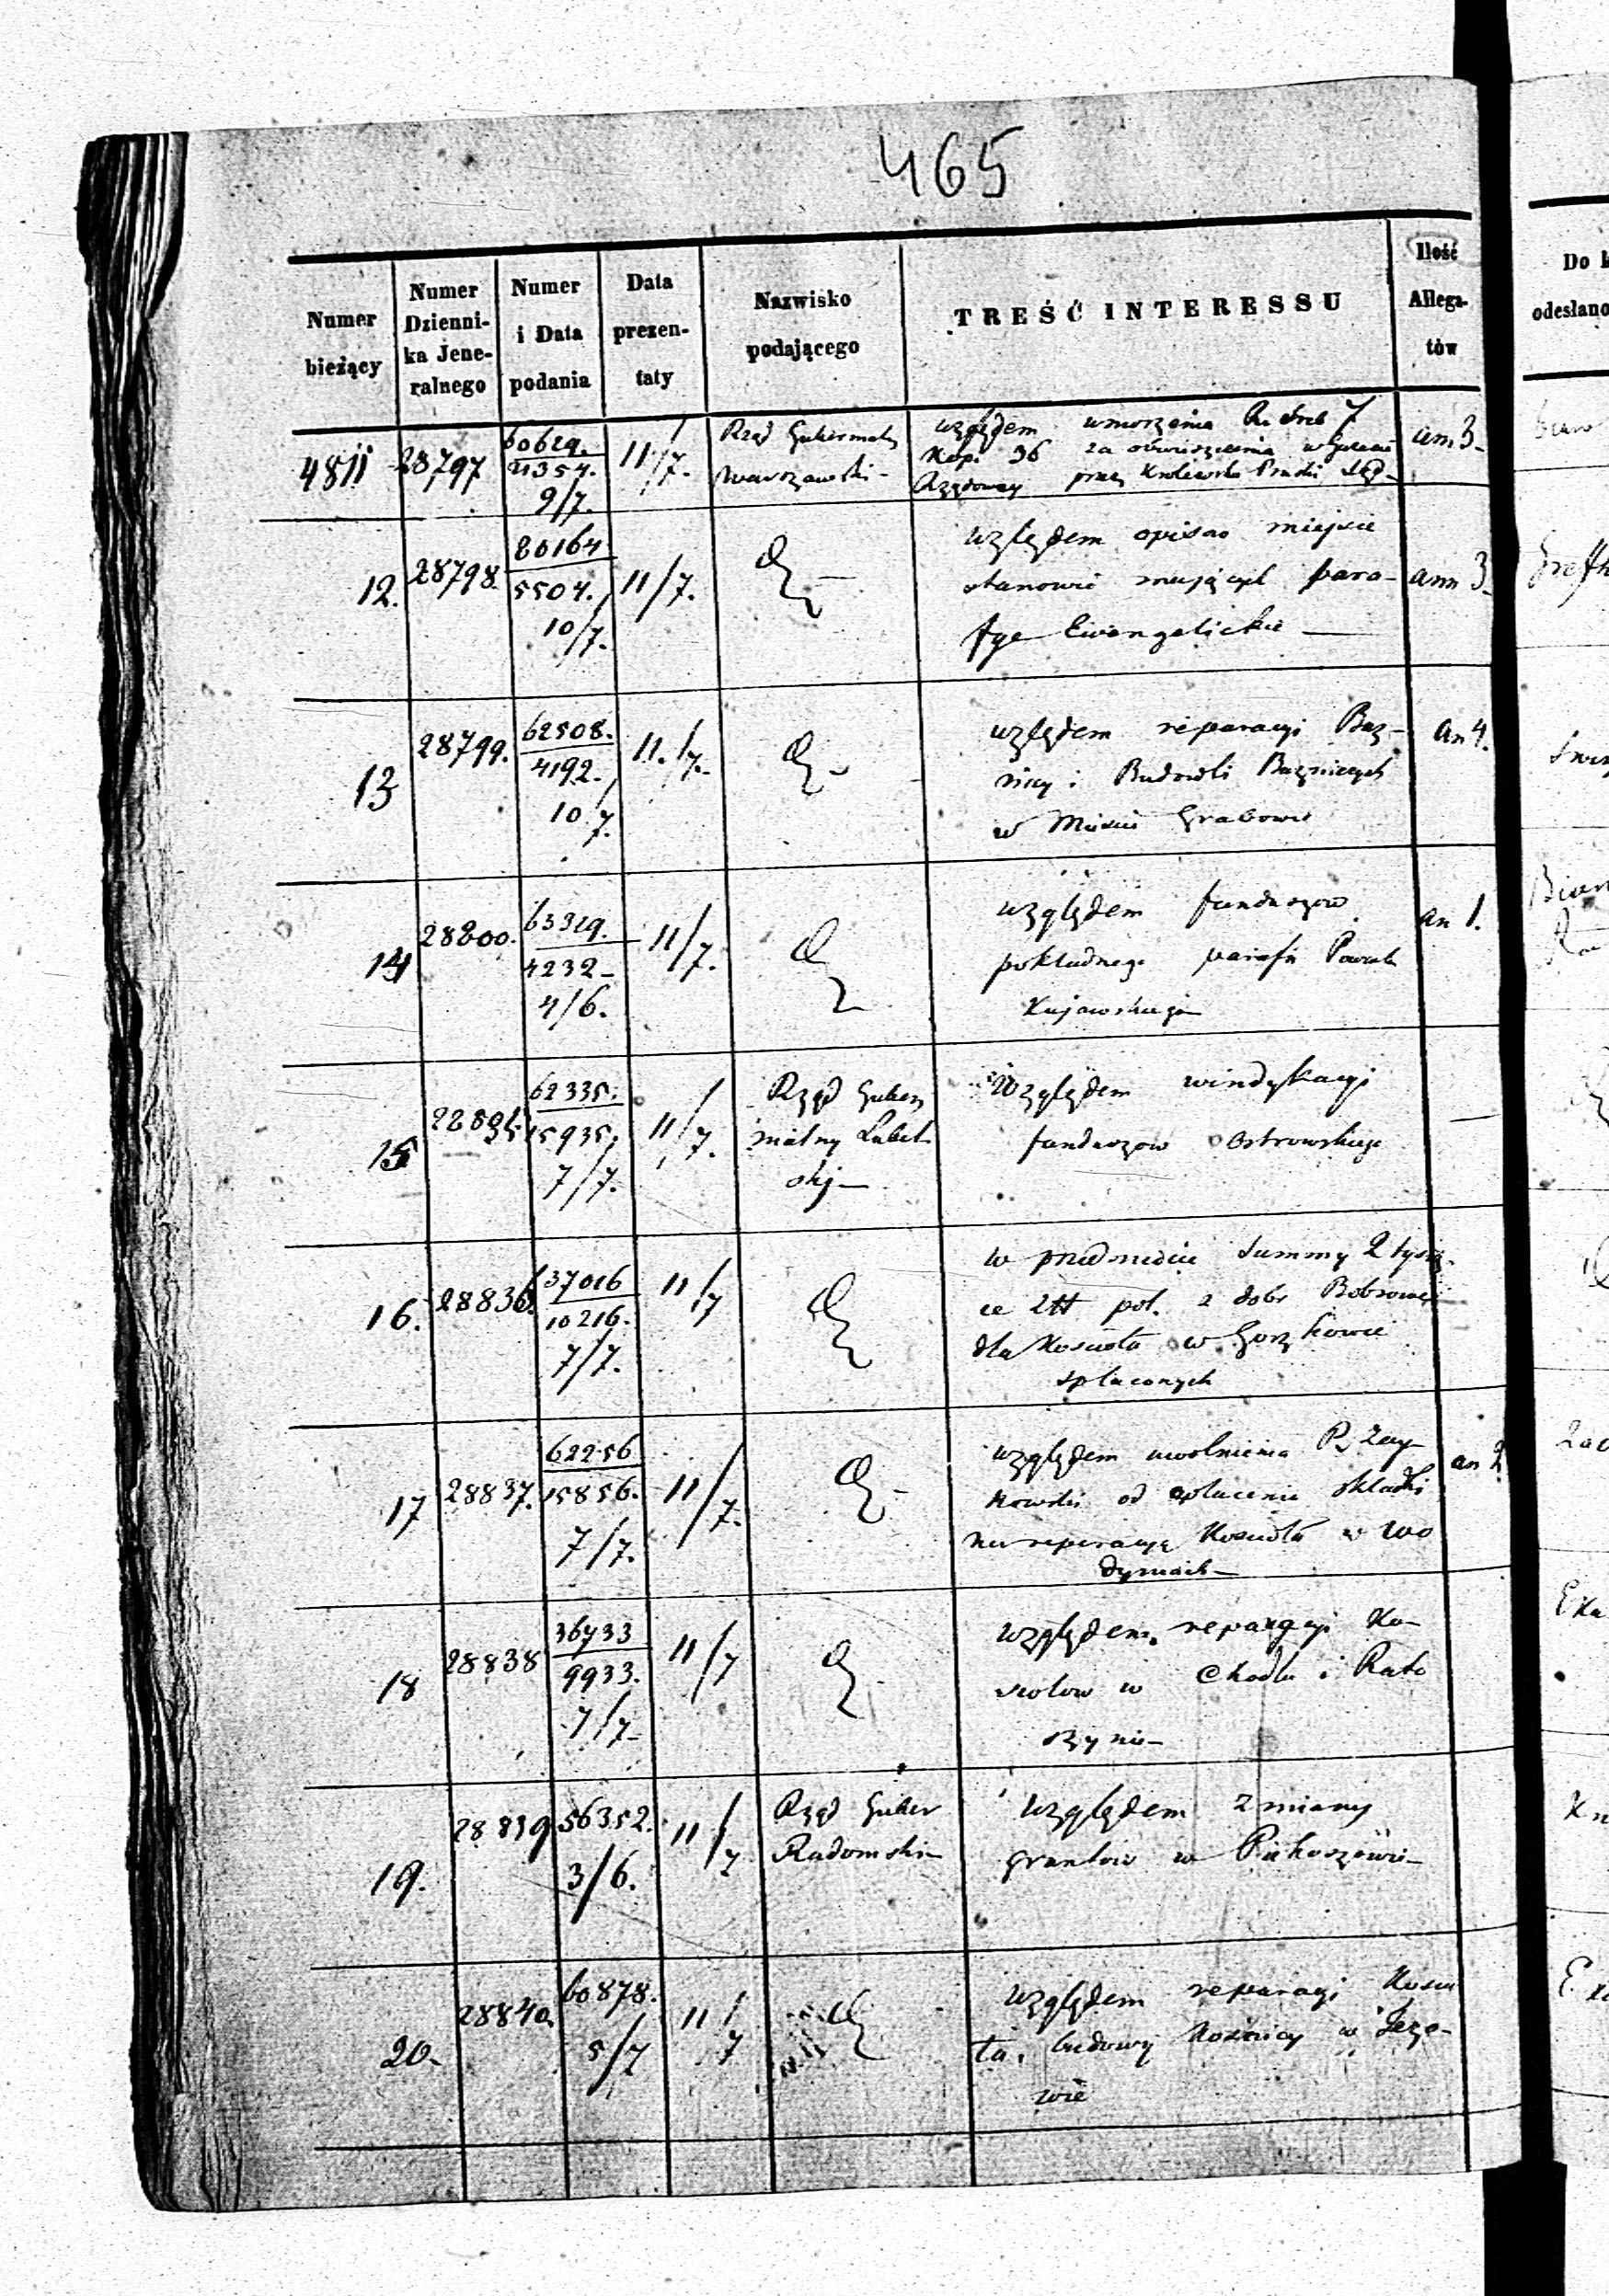 465
Numer bieżący
Numer Dzienni-ka Jene-ralnego
Numer i Data podania
Data prezen-taty
Nazwisko podającego
TREŚĆ INTERESSU
Ilość Allega-tów
Do
odesłano
4811 28797 60629. 21354. 9/7. 11/7. Rząd Gubernialny Warszawski
względem umorzenia Rs. Sreb 7
Kop. 36 za obwieszczenia w Gazecie
Rządowey przez
ann 3
12. 28798. 5504. 10/7. 11/7.
względem opisów miejsc
stanowić mających para-
fye Ewangelickie
ann 3
13 28799. 62508. 4192. 10/7. 11/7.
względem reparacyi Boż-
nicy i Budowli Bożniczych
w Mieście Grabowie
an 4.
14 28800. 63329. 4232 4/6. 11/7.
względem funduszow
pokładnego parafii Powiatu
Kujawskiego
an 1.
15 62335. 15935. 7/7. 11/7. Rząd Guber
nialny Lubel
ski
Względem windykacyi
funduszow Ostrowskiego
16. 28836. 37016 10216. 7/7. 11/7
w przedmiocie Summy 2 tysią
ce zł pol. z dobr
dla Kościoła w Gorzkowie
spłaconych
17 28837. 62256 15856. 7/7. 11/7.
względem uwolnienia P.
od opłacenia składki
na reperacye Kościoła w Wo
dyniach
an 2
18 28838 36733 9933. 7/7 11/7
względem reparacyi Ko-
sciołow w Chodlu i Rato
szynie
19. 28839 56352. 3/6. 11/7 Rząd Guber
Radomski
względem zmiany
gruntow w Piekoszowie
20. 28840. 60878. 5/7 11/7
względem reparacyi Koscio
ła, budowy Kostnicy w Jeżo-
wie